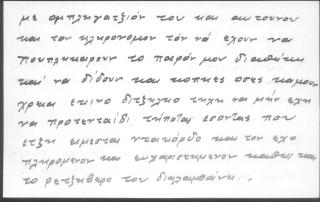 με ομπληγατζιόν του και αυτουνου
και τον κληρονομον τόν νά εχουν να
πουπληκαρουν το παρόν μου διαθήκη
και να δίδουν και κοπιες οσες καμουν
χρεια εκινο διτζηλιο τυχη να μήν εχη
να προτενταίδι τήποτας εσοντας που
ετζη ειμεσται ντακόρδο και τον εχο
πληρομενον και ευχαριστημενον καθως και
το ρετζηβερο του διαλαμβάνη.